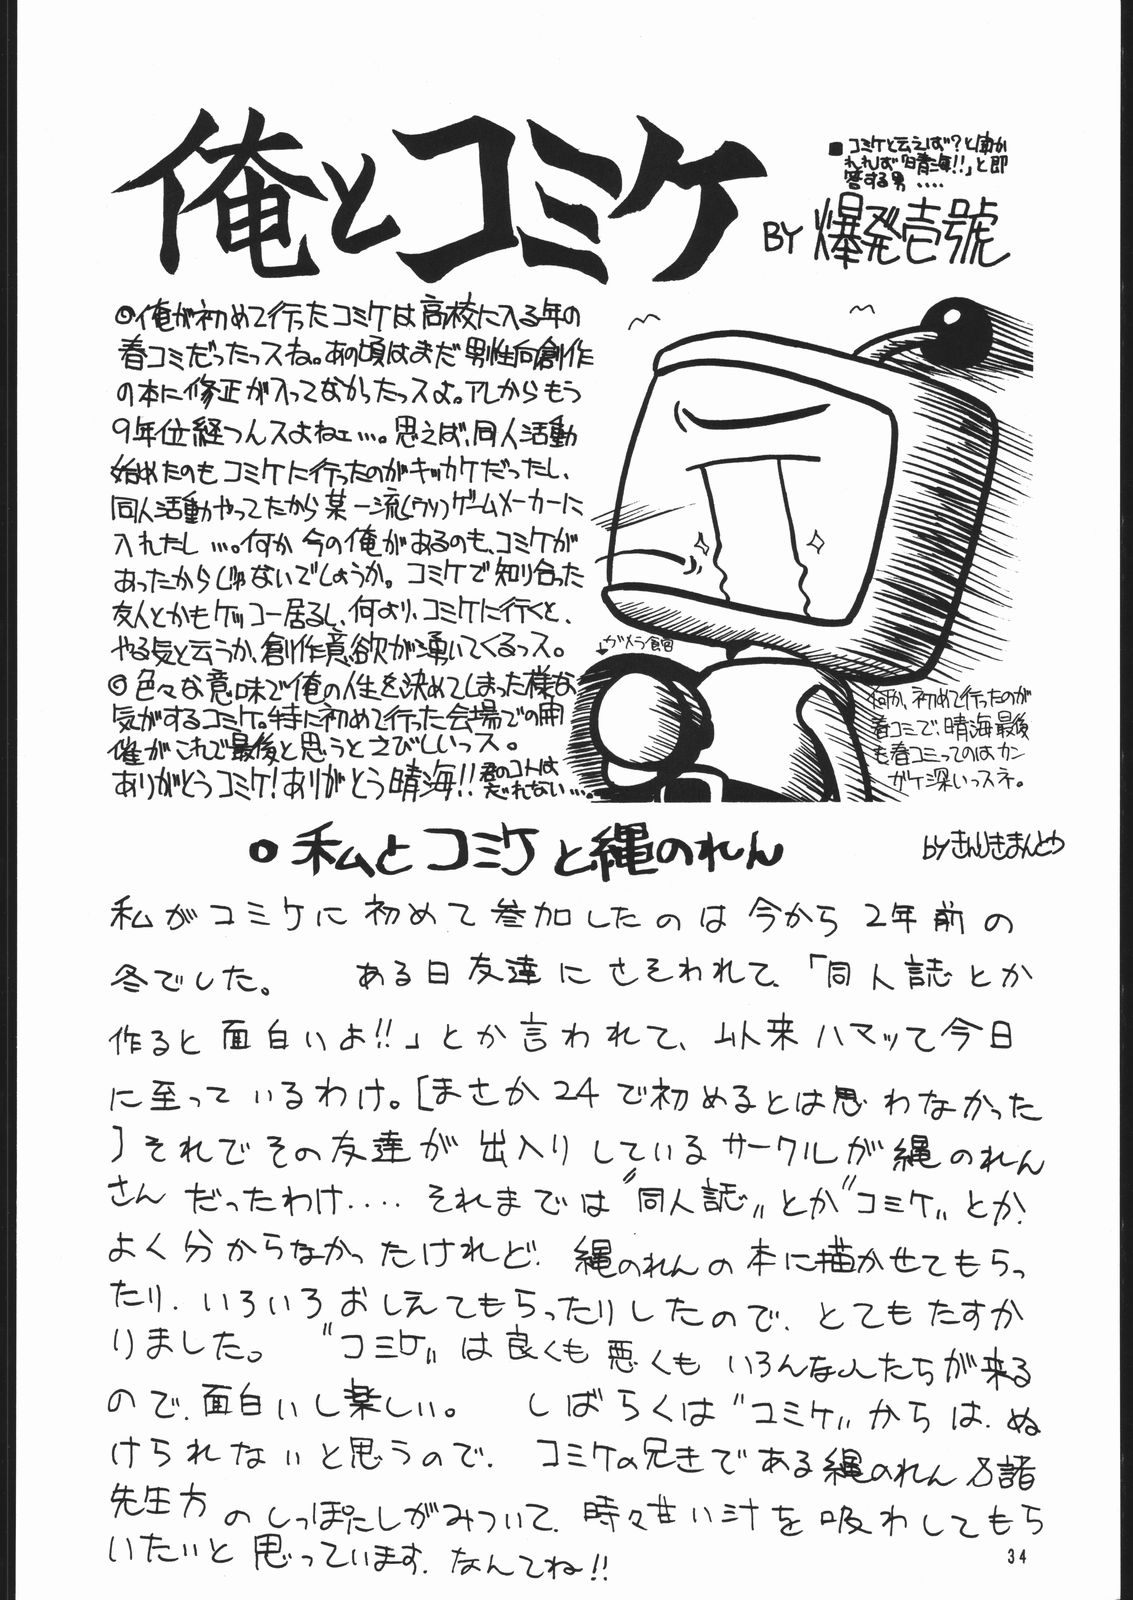 俺とコミケ
■コミケと云えば?と聞か
れれば「晴海!!」と即
答する男....
BY 爆発壱號
◎俺が初めて行ったコミケは高校に入る年の
春コミだったっスね。あの頃はまだ男性向創作
の本に修正が入ってなかったっスよ。アレからもう
9年位経つんスよねェ…。思えば、同人活動
始めたのもコミケに行ったのがキッカケだったし、
同人活動やってたから某一流(ウソ)ゲームメーカーに
入れたし…。何か今の俺があるのも、コミケが
あったからじゃないでしょうか。コミケで知り合った
友人とかもケッコー居るし、何より、コミケに行くと、
やる気と云うか、創作意欲が湧いてくるっス。
◎色々な意味で俺の人生を決めてしまった様な
気がするコミケ。特に初めて行った会場での開
催がこれで最後と思うとさびしいっス。
ありがとうコミケ!ありがとう晴海!!君のコトは
忘れない…。
ガメラ食
何か、初めて行ったのが
春コミで、晴海最後
も春コミってのはカン
ガケ深いっスネ。
○私とコミケと縄のれん
byきんりきまんとう
私がコミケに初めて参加したのは今から2年前の
冬でした。 ある日友達にさそわれて、「同人誌とか
作ると面白いよ!!」とか言われて、以来ハマッて今日
に至っているわけ。[まさか24で初めるとは思わなかった
]それでその友達が出入りしているサークルが縄のれん
さんだったわけ....それまでは"同人誌"とか"コミケ"とか、
よく分からなかったけれど、縄のれんの本に描かせてもらっ
たり、いろいろおしえてもらったりしたので、とてもたすか
りました。 "コミケ"は良くも悪くもいろんな人たちが来る
ので、面白いし楽しい。 しばらくは"コミケ"からは、ぬ
けられないと思うので、コミケの兄きである縄のれん&諸
先生方のしっぽにしがみついて、時々甘い汁を吸わしてもら
いたいと思っています、なんてね!!
34